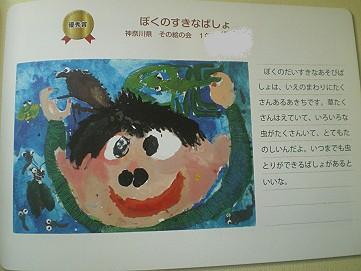 優秀賞
ぼくのすきなばしょ
神奈川県 その絵の会
ぼくのだいすきなあそびば
しょは、いえのまわりにたく
さんあるあきちです。草たく
さんはえていて、いろいろな
虫がたくさんいて、とてもた
のしいんだよ。いつまでも虫
とりができるばしょがあると
いいな。